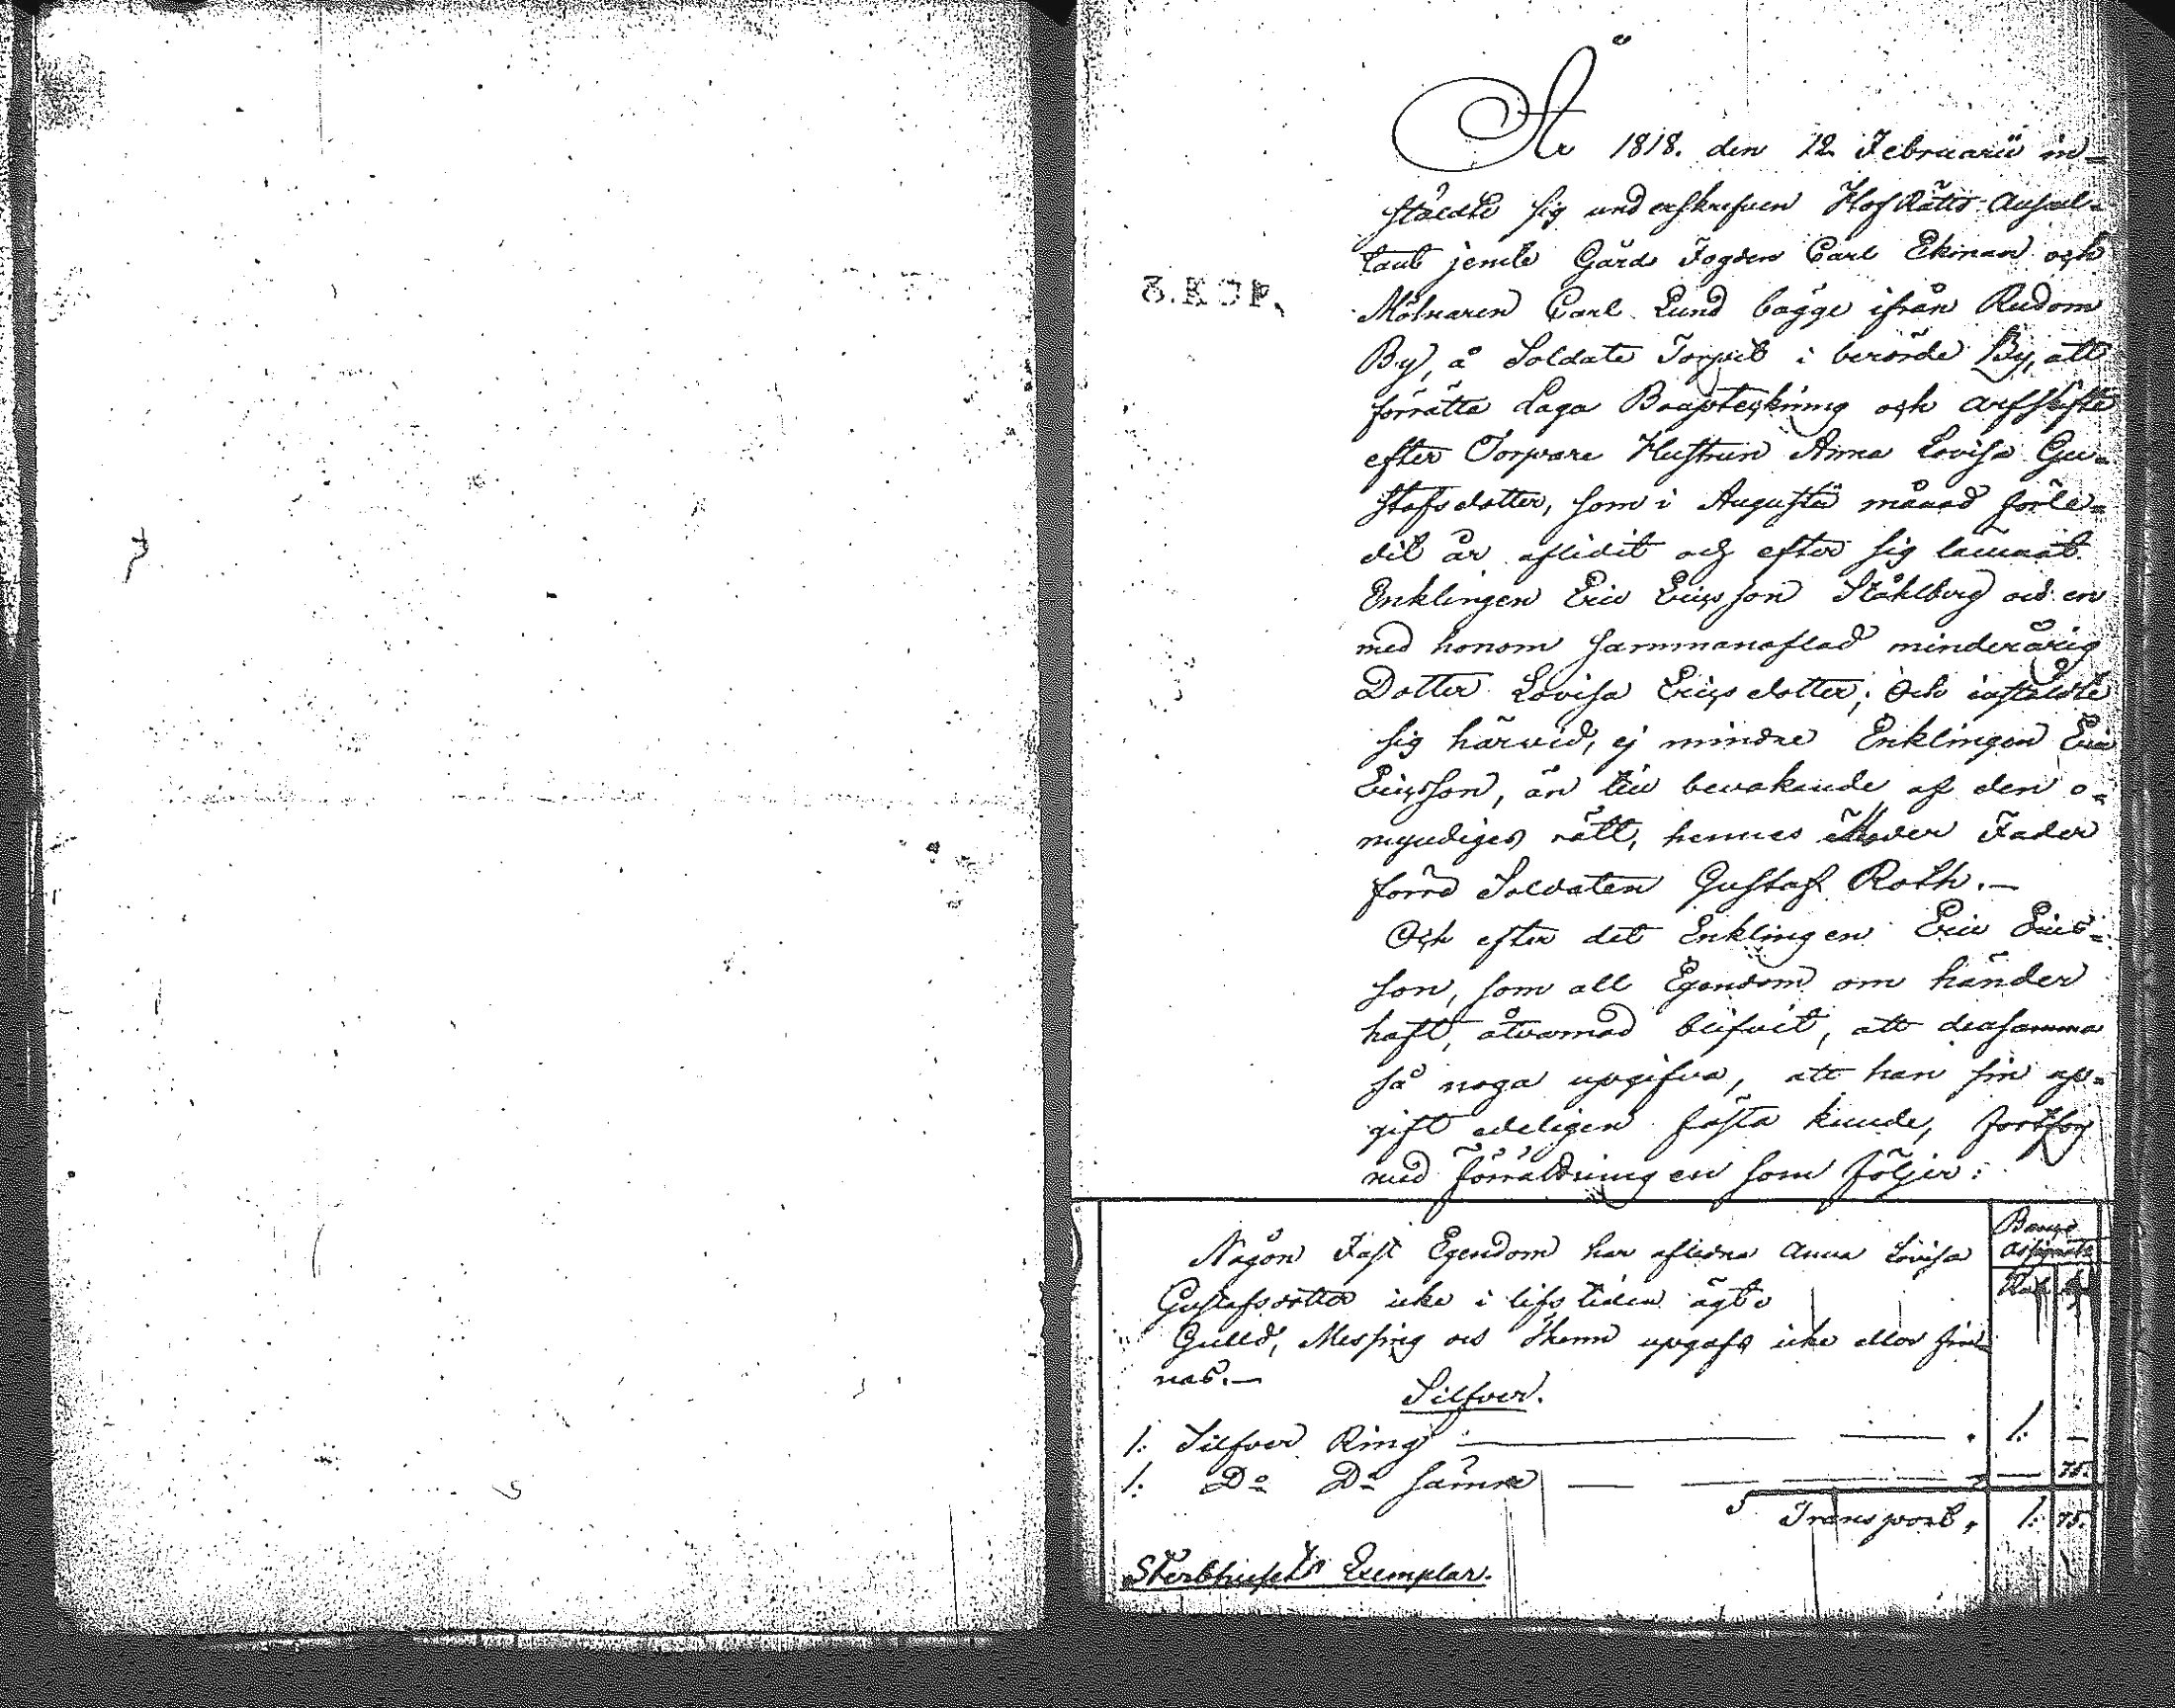 År 1818. den 12 Februarii in-
stäldte sig underskrifven Hof Rätts-Auscul-
tant jemte Gårds Fogden Carl Ekman och
8.KOP.
Mölnaren Carl Lund bägge ifrån Rudom
By, å Soldate Torpet i berörde By, att
förrätta Laga Bouptekning och arfskifte
efter Torpare Hustrun Anna Lovisa Gu-
stafsdotter, som i Augustii månad förle-
dit år aflidit och efter sig lämnat
Enklingen Eric Ericsson Ståhlberg och en
med honom sammanaflad minderårig
Dotter Lovisa Ericsdotter; Och instäldte
sig härvid, ej mindre Enklingen Eric
Ericsson, än till bevakande af den o-
myndiges rätt, hennes Moder Fader
förra Soldaten Gustaf Roth.—
Och efter det Enklingen Eric Erics-
son, som all Egendom om händer
haft, åtvarnad blifvit, att densamma
så noga upgifva, att han sin up-
gift edeligen fästa kunde, fortfor
med förrättningen som följer:
Banco
Assignate
Någon Fast Egendom har aflidna Anna Lovisa
Gustafsdotter icke i lifstiden ägt.
Guld, Messing och Thenn upgafs icke eller fin-
nas.—
Silfver.
1. Silfver Ring 1. —
1. Do Do sämre — 75.
Transport, 1. 75.
Sterbhusets Exemplar.